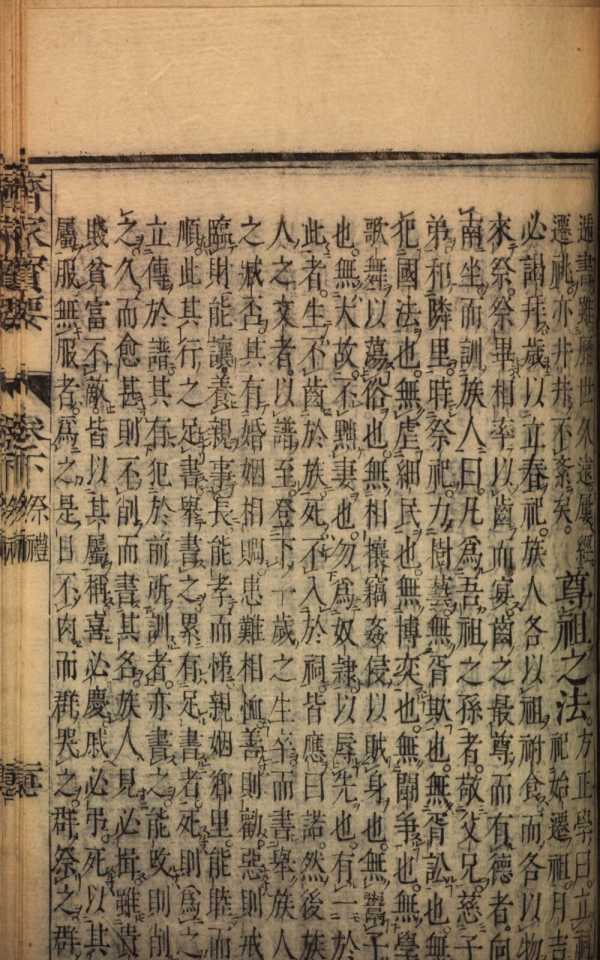 過書雖歷世久遠屢經尊祖之法方正學曰立祠
遷祧亦井井不紊矣祀始遷祖月吉
必謁拜歲以立春祀族人各以祖祔食而各以物
來祭祭畢相率以齒而宴齒之最尊而有德者向
南坐而訓族人曰凡為吾祖之孫者敬父兄慈子
弟和隣里時祭祀力樹藝無胥欺也無胥訟也無
犯國法也無虐細民也無博奕也無鬭爭也無學
歌舞以蕩俗也無相攘竊姦侵以賊身也無鬻子
也無大故不黜妻也勿為奴隸以辱先也有一於
此者生不齒於族死不入於祠皆應曰諾然後族
人之文者以譜至登下一歲之生卒而書舉族人
之臧否其有婚姻相賙患難相恤善則勸惡則戒
臨財能讓養親事長能孝而悌親姻鄉里能睦而
順此其行之足書舉書之累有足書者死則為之
立傳於譜其有犯於前所訓者亦書之能改則削
之久而愈甚則不削而書其名族人見必揖雖貴
賤貧富不敵皆以其屬稱喜必慶戚必弔死以其
屬服無服者為之是日不肉而群哭之群祭之群
齊家寶要 卷下 祭禮